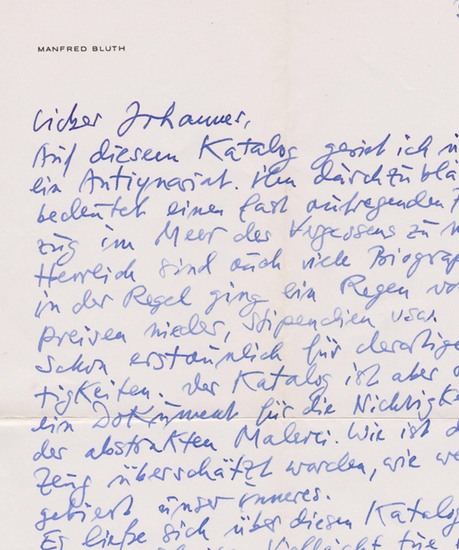 MANFRED BLUTH
Lieber Johannes,
Auf diesem Katalog geriet ich
ein Antiquariat. Ihn durchzublä
bedeutet einen fast aufregenden
zug im Meer des Vergessens zu
Herrlich sind auch viele Biograp
in der Regel ging ein Regen vo
Preisen nieder, Stipendien usw.
Schon erstaunlich für derartige
tigkeiten. Der Katalog ist aber
ein Dokument für die Nichtigke
der abstrakten Malerei. Wie ist d
Zeug überschätzt worden, wie we
gebiert unser Inneres.
Es ließe sich über diesen Katalog
Vielleicht für